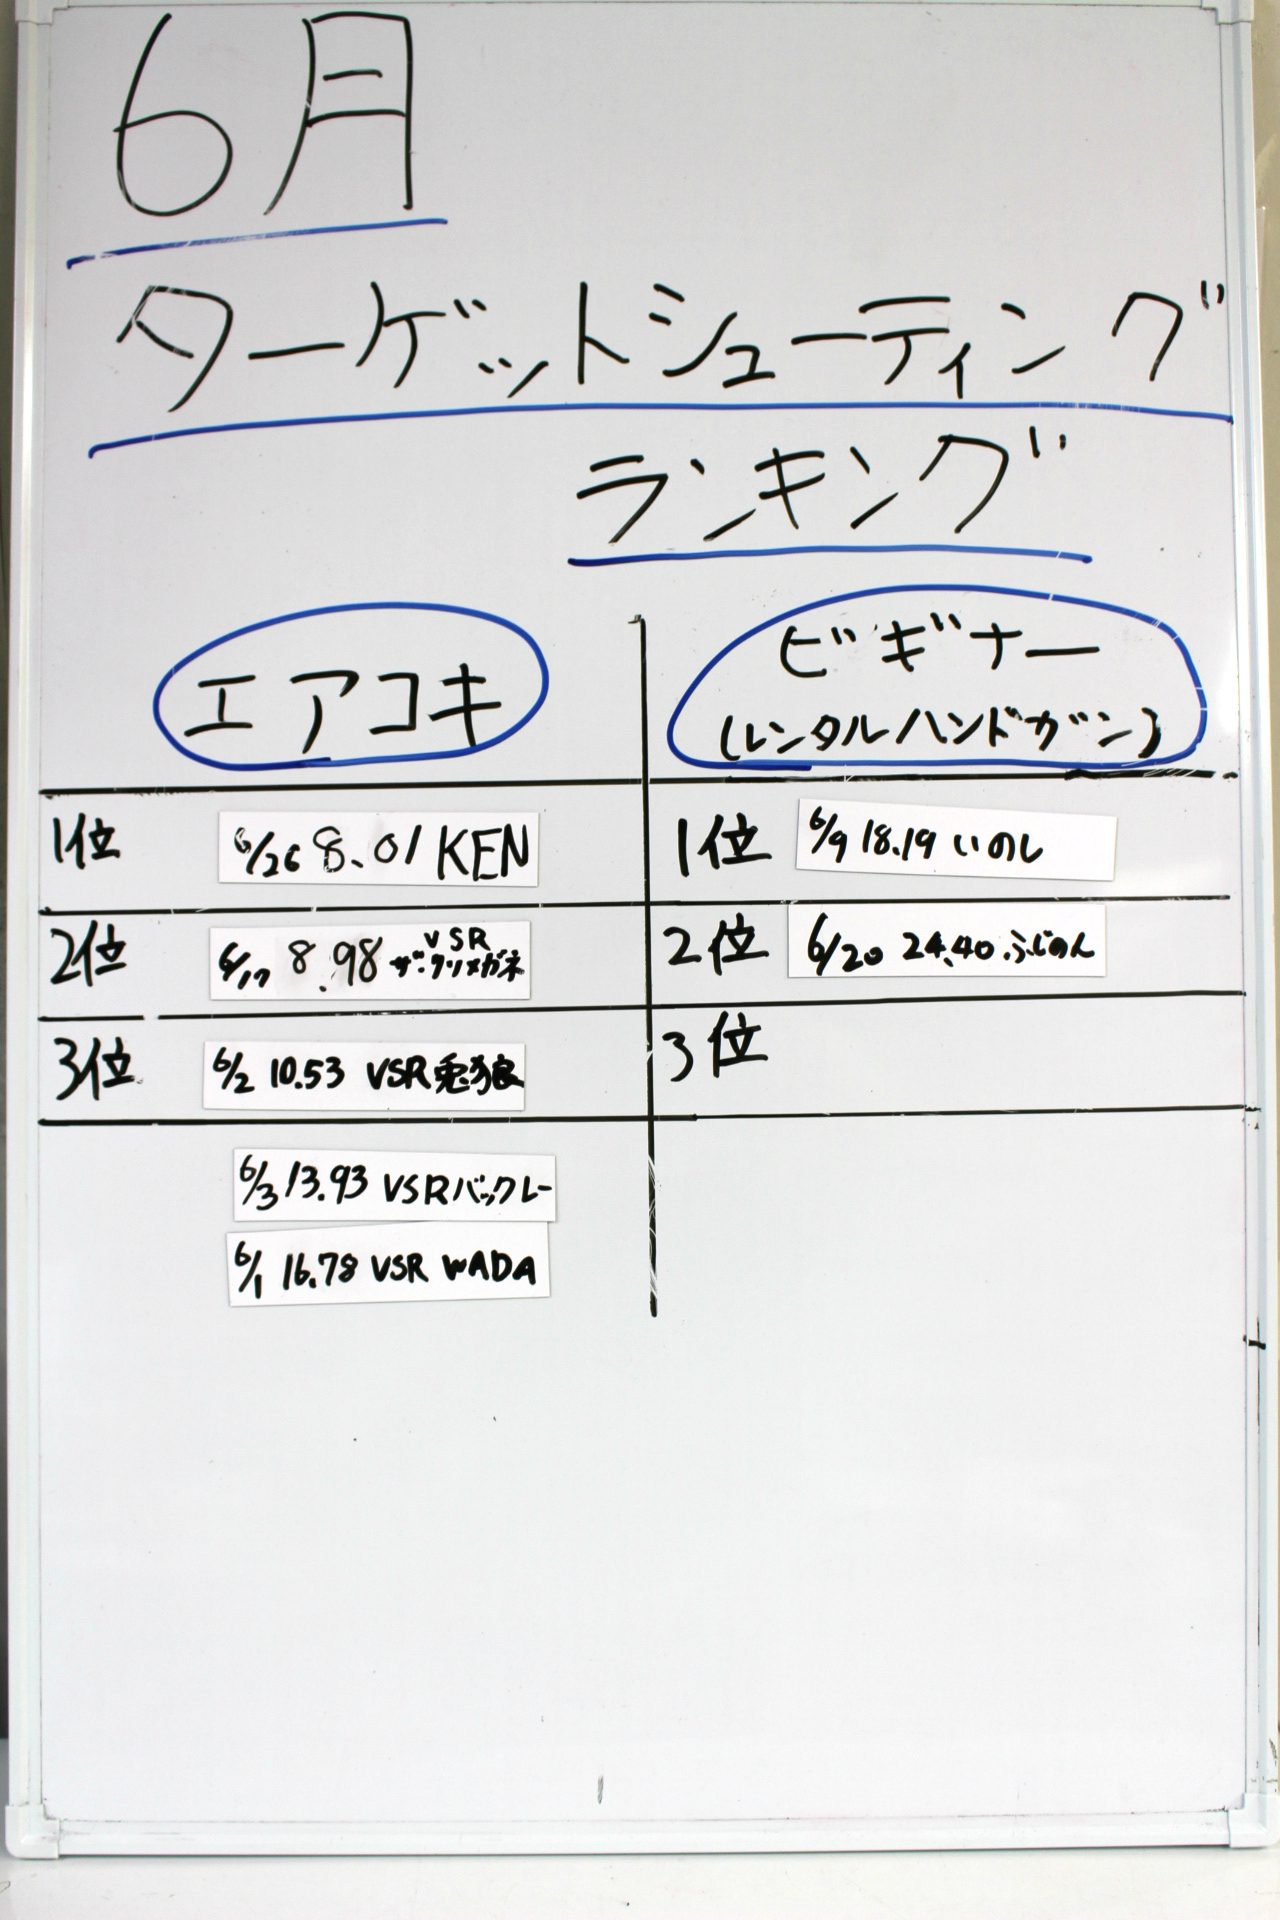 6月
ターゲットシューティング
ランキング
エアコキ
1位 6/26 8.01 KEN
2位 6/17 8.98 VSR
ザ・クソメガネ
3位 6/2 10.53 VSR兎狼
6/3 13.93 VSRバックレー
6/1 16.78 VSR WADA
ビギナー
(レンタルハンドガン)
1位 6/9 18.19 いのし
2位 6/20 24.40 ふじのん
3位